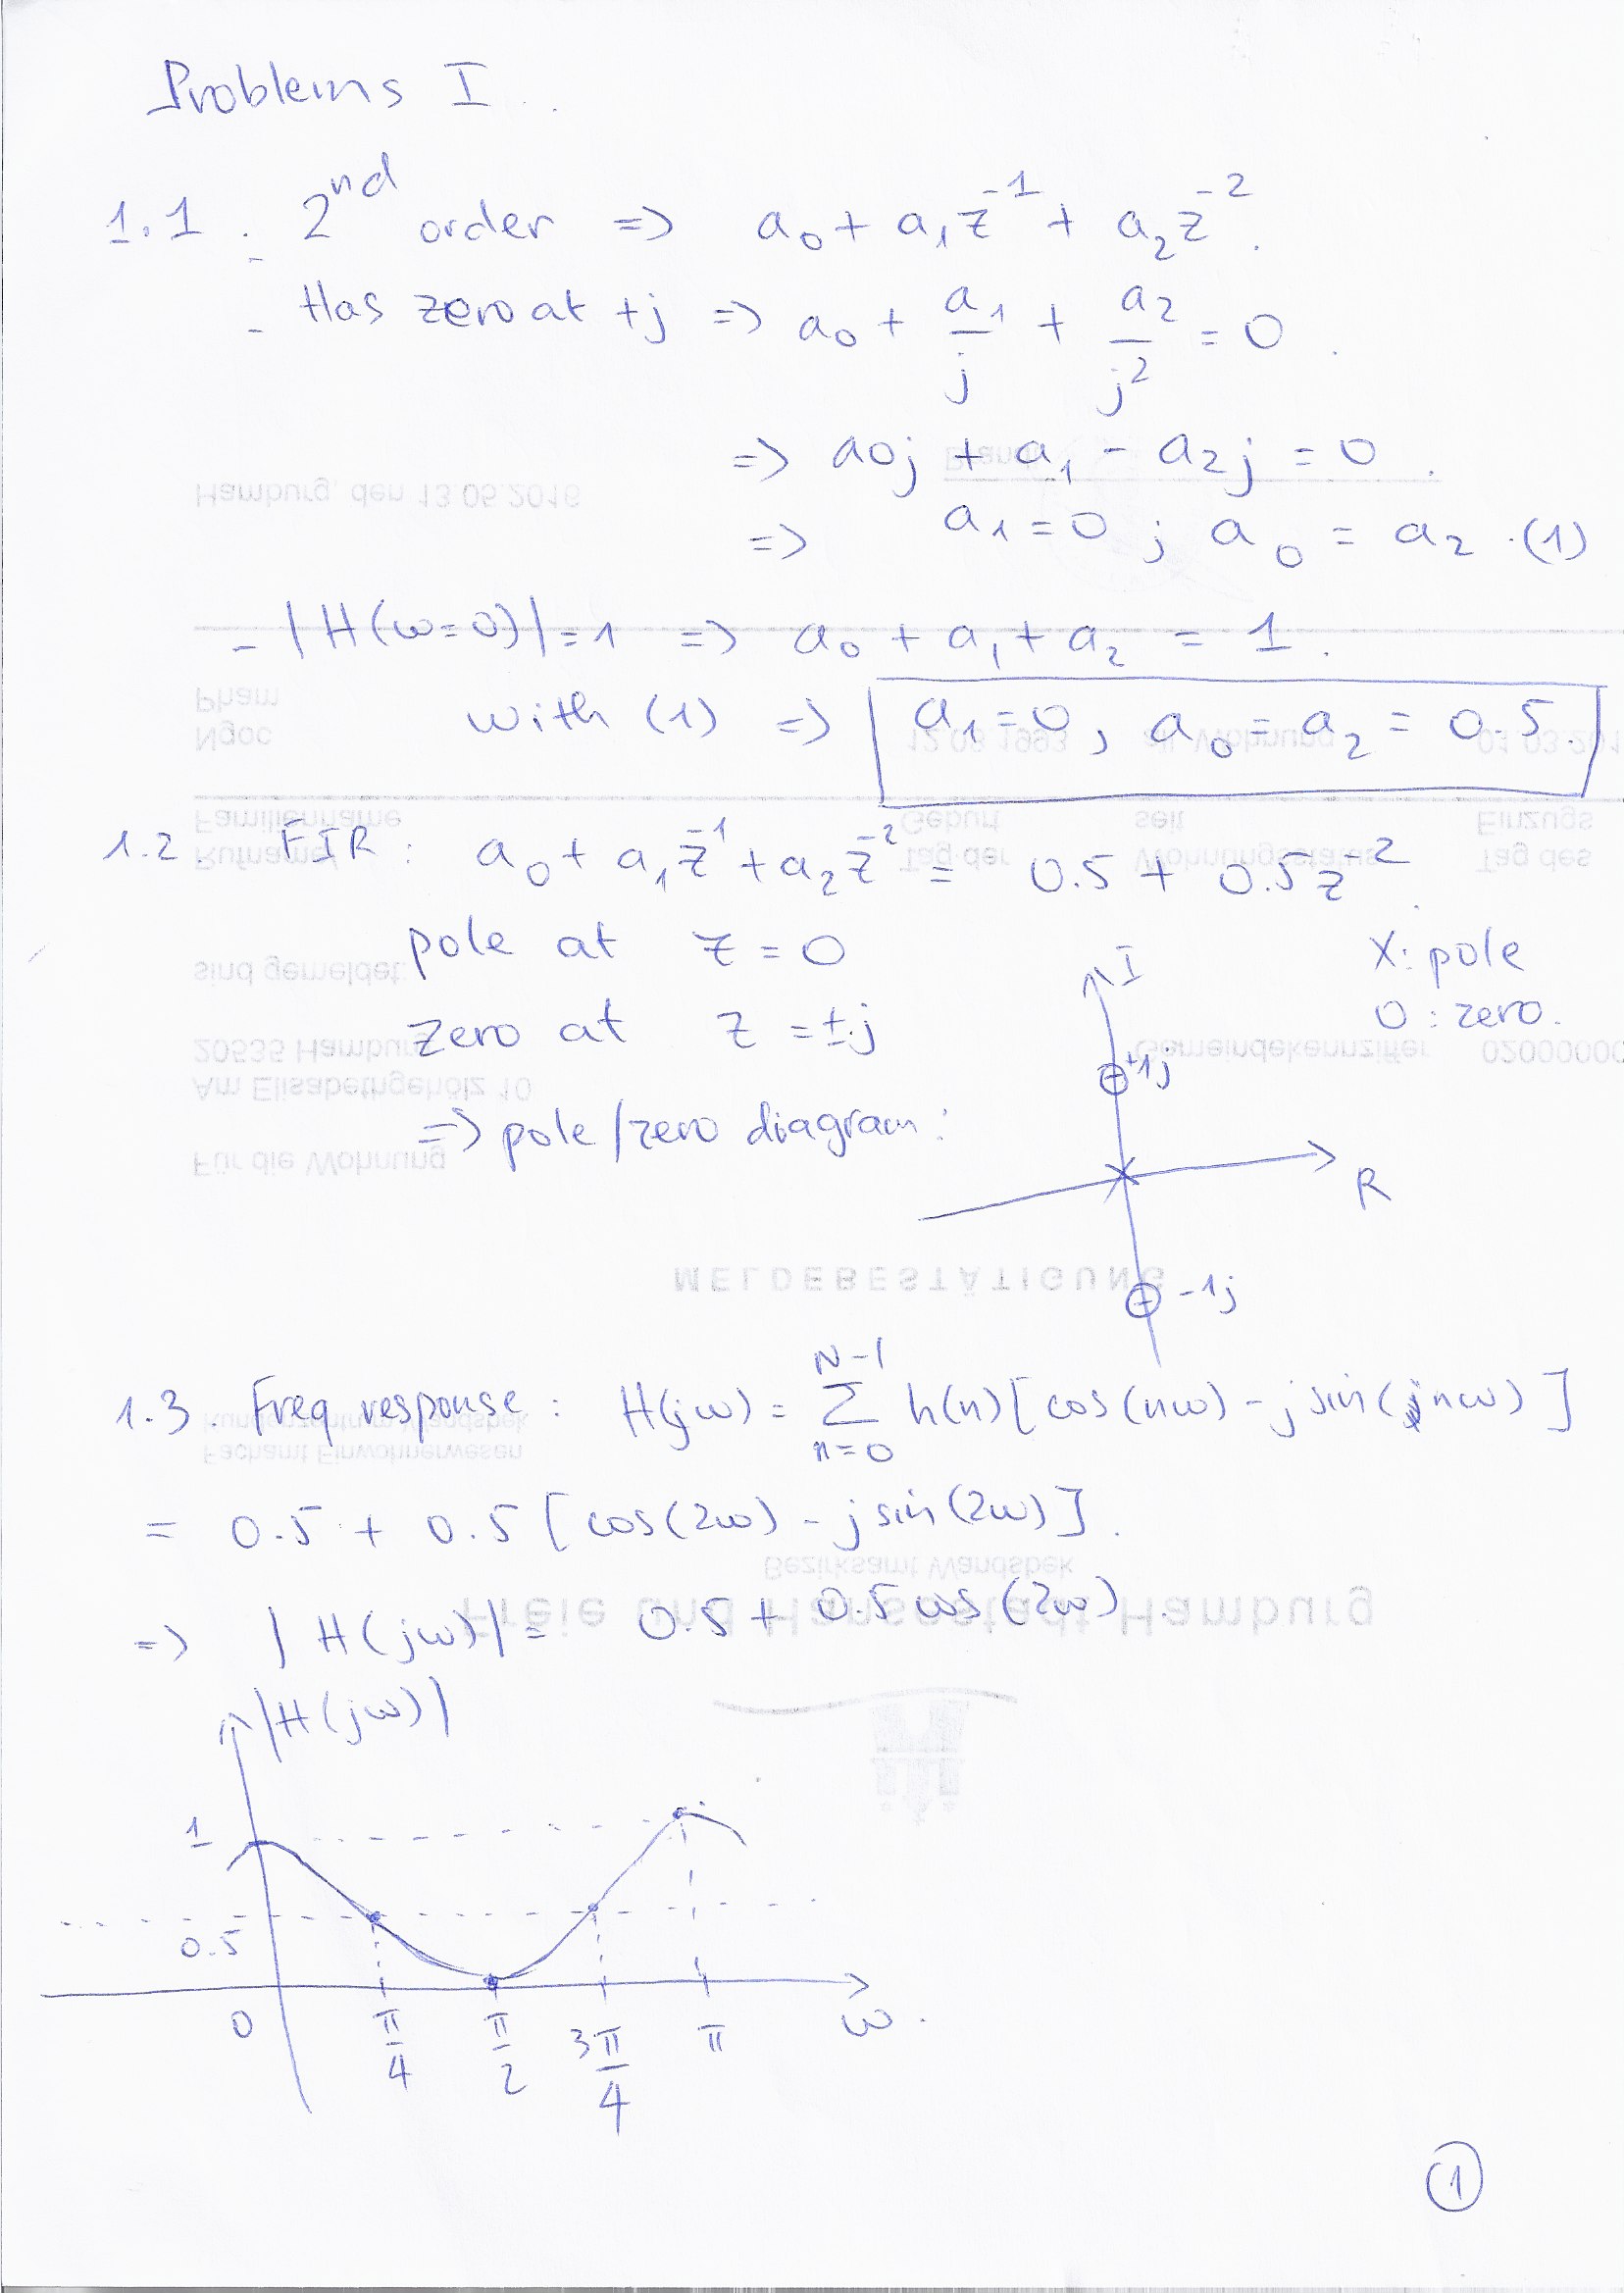 Problems I
1.1. 2nd order => a0 + a1z^-1 + a2z^-2.
- Has zero at +j => a0 + a1/j + a2/j^2 = 0.
=> a0j + a1 - a2j = 0.
=> a1 = 0 ; a0 = a2 .(1)
- |H(ω=0)| = 1 => a0 + a1 + a2 = 1.
with (1) => a1 = 0, a0 = a2 = 0.5.
1.2. FIR: a0 + a1z^-1 + a2z^-2 = 0.5 + 0.5z^-2.
pole at z = 0
zero at z = ±j
=> pole/zero diagram:
X: pole
O: zero.
I
+1j
R
-1j
1.3. Freq response: H(jω) = Σ_{n=0}^{N-1} h(n)[cos(nω) - j sin(nω)]
= 0.5 + 0.5[cos(2ω) - j sin(2ω)].
=> |H(jω)| = 0.5 + 0.5 cos(2ω)
|H(jω)|
1
0.5
0 π/4 π/2 3π/4 π ω.
1
Hamburg, den 13.06.2016
Pham
Ngoc
Familienname
Rufname
Geburt
Tag der
seit
Wohnungsstatus
Einzugs
Tag des
sind gemeldet.
20535 Hamburg
Am Elisabethgehölz 10
Gemeindekennziffer
Für die Wohnung
MELDEBESTÄTIGUNG
Kundenzentrum Wandsbek
Fachamt Einwohnerwesen
Bezirksamt Wandsbek
Freie und Hansestadt Hamburg